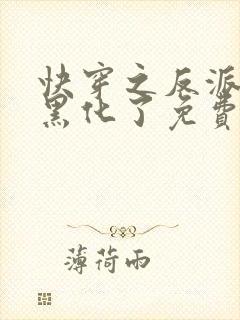 快穿之反派
黑化了免費
薄荷雨